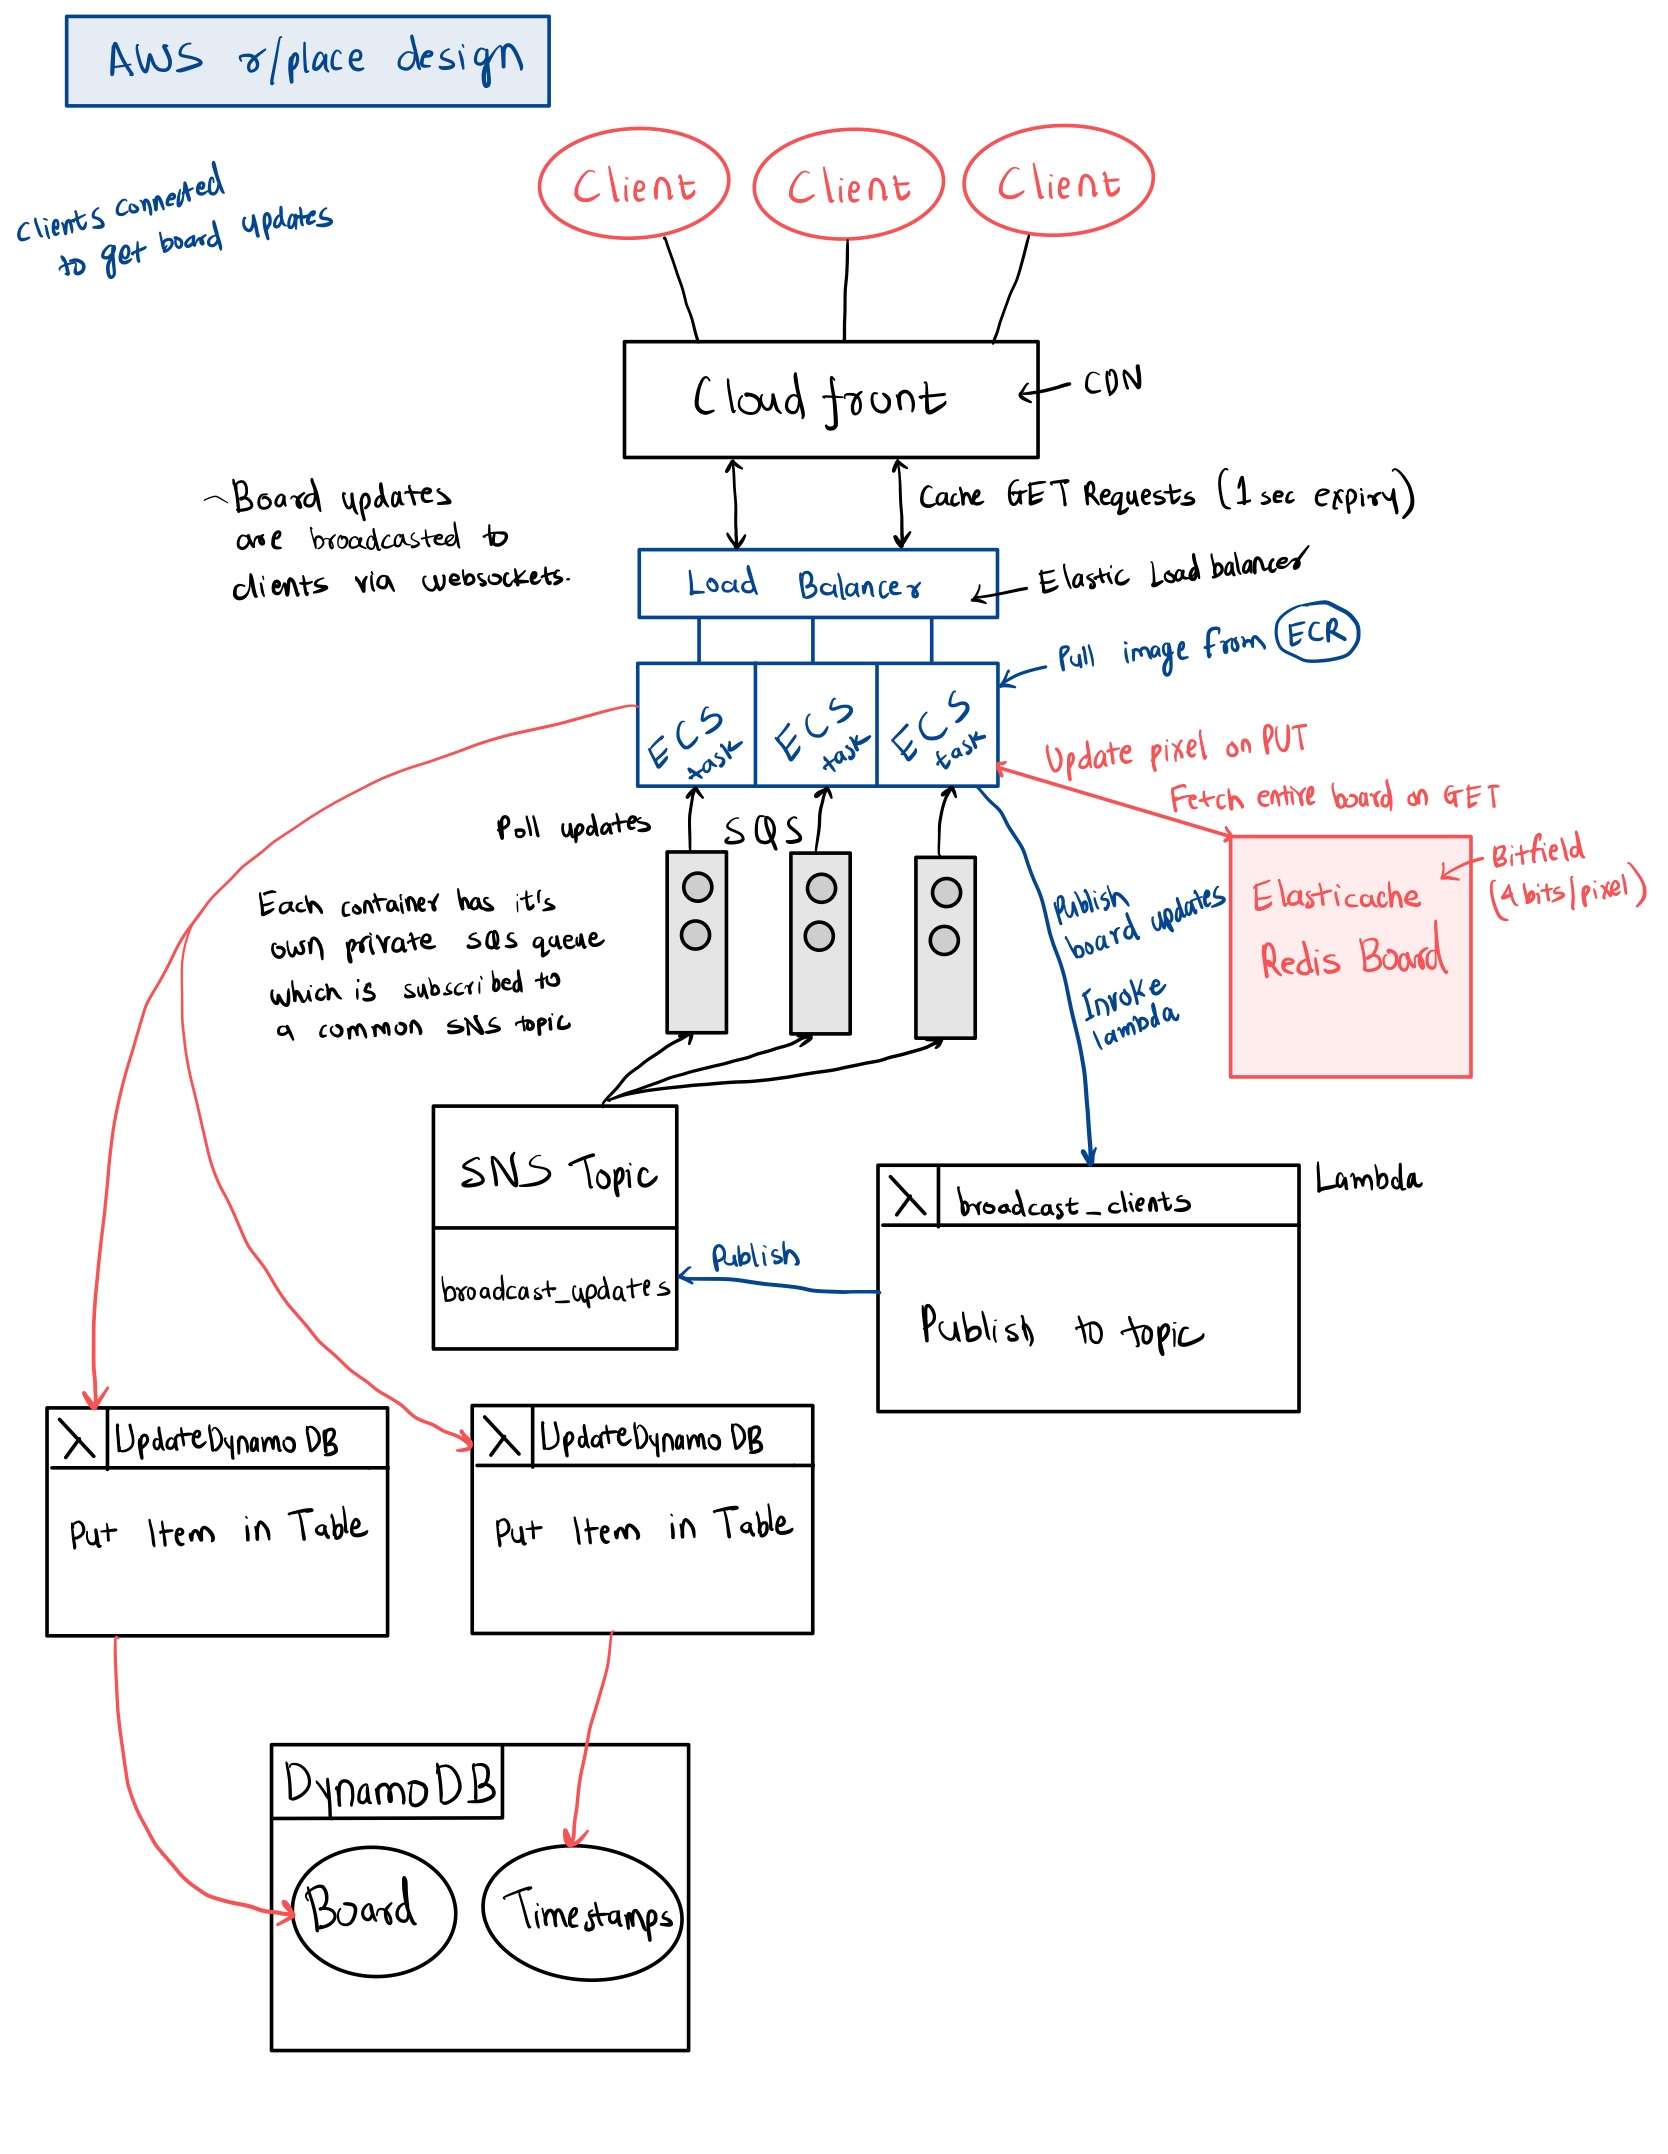 AWS r/place design
Clients connected
to get board updates
Client
Client
Client
Cloudfront
CDN
Board updates
are broadcasted to
clients via websockets.
Cache GET Requests (1 sec expiry)
Load Balancer
Elastic Load balancer
Pull image from ECR
ECS
task
ECS
task
ECS
task
Update pixel on PUT
Fetch entire board on GET
Poll updates
SQS
Each container has it's
own private SQS queue
which is subscribed to
a common SNS topic
Publish
board updates
Invoke
lambda
Elasticache
Redis Board
Bitfield
(4 bits/pixel)
SNS Topic
broadcast_updates
Publish
broadcast_clients
Lambda
Publish to topic
UpdateDynamoDB
Put Item in Table
UpdateDynamoDB
Put Item in Table
DynamoDB
Board
Timestamps